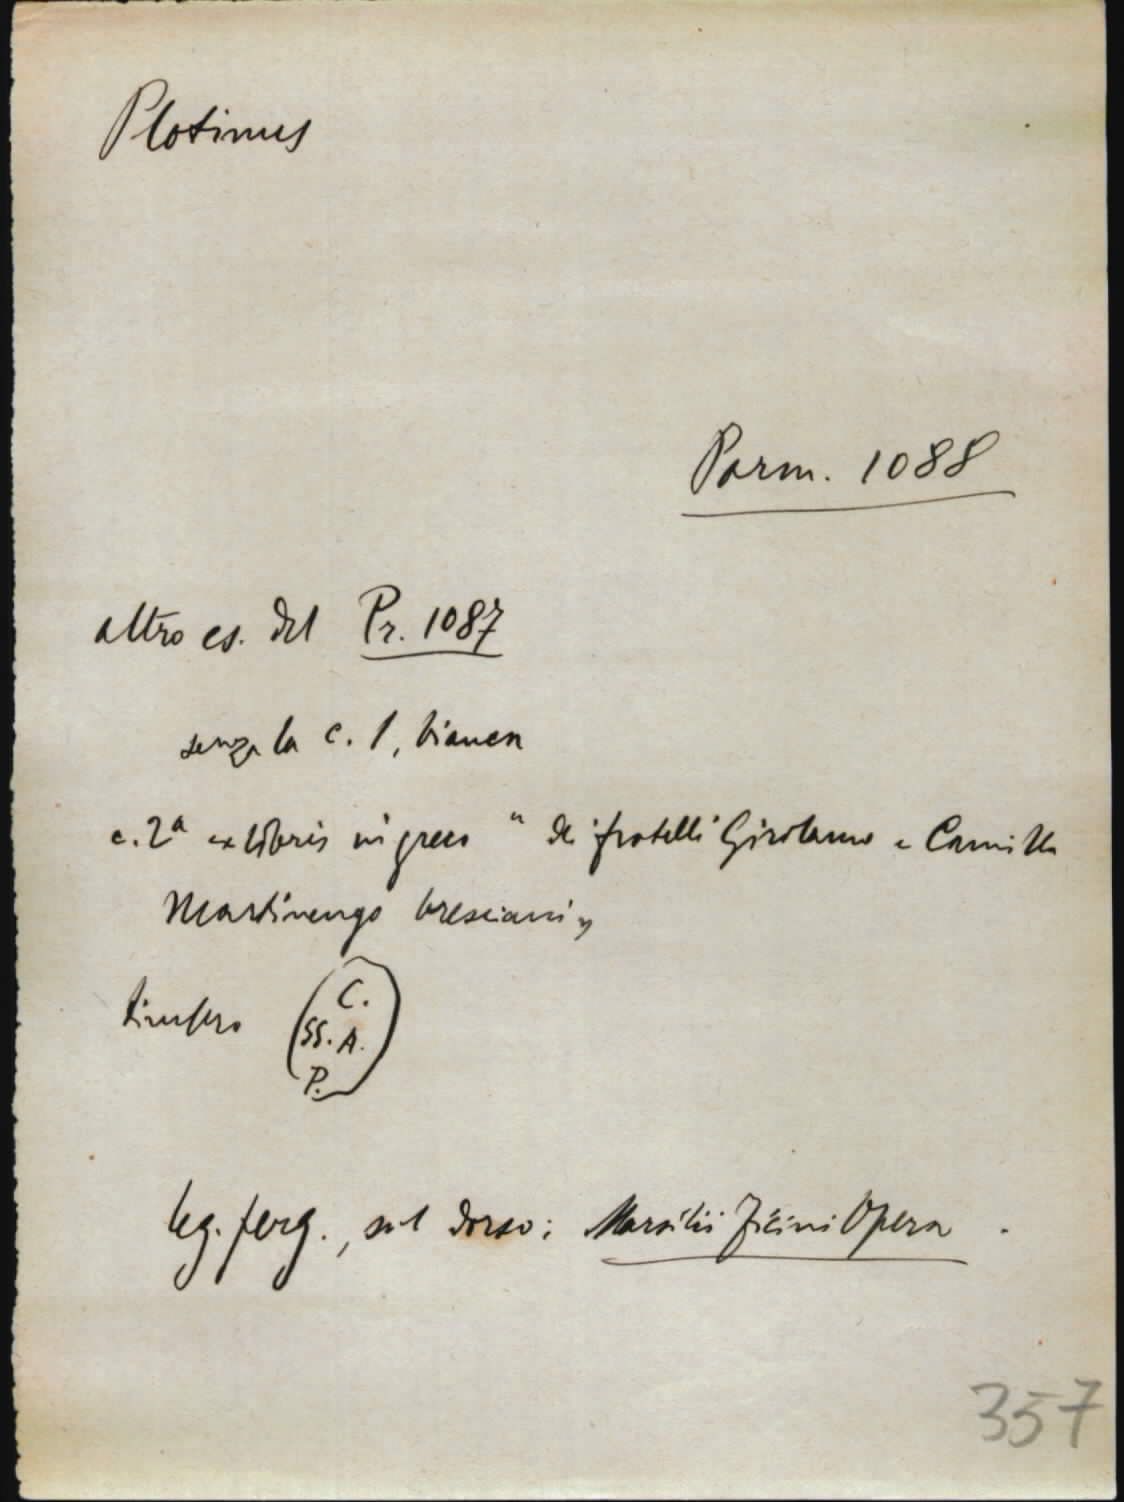 Plotinus
Parm. 1088
altro es. del Pr. 1087
senza la c. 1, bianca
c. 2ª ex libris in greco "dei fratelli Girolamo e Camillo
Martinengo bresciani"
timbro
C.
SS. A.
P.
leg. perg., sul dorso: Marsilii Ficini Opera .
357